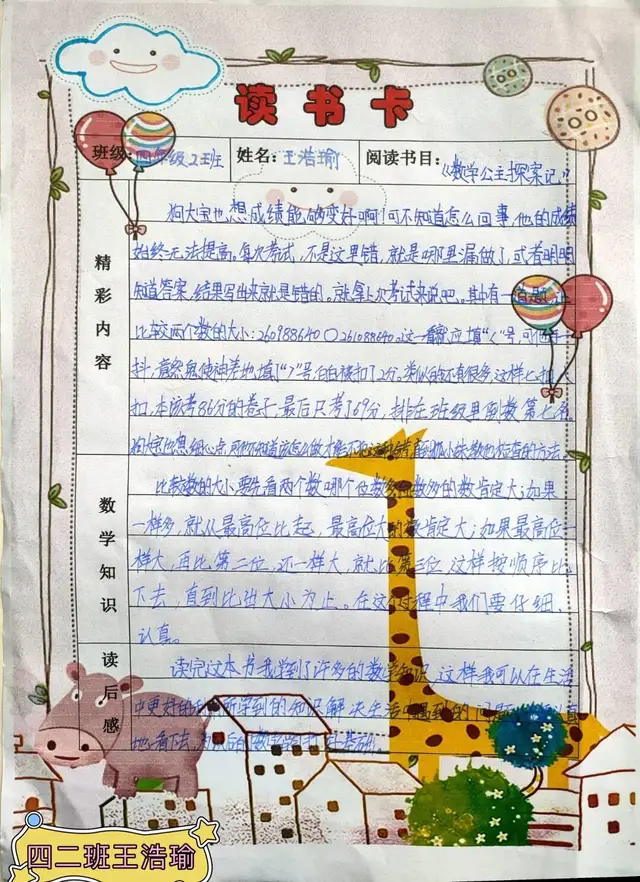 读书卡
班级：四年级2班 姓名：王浩瑜 阅读书目：《数学公主探案记》
精彩内容
狗大宝也想成绩能够变好啊！可不知道怎么回事，他的成绩
始终无法提高。每次考试，不是这里错，就是哪里漏做了，或者明明
知道答案，结果写出来就是错的。就拿上次考试来说吧。其中有一道题，
比较两个数的大小：260988640〇261088640。这一看就应填“<”号，可他手一
抖，竟然鬼使神差地填了“>”号，白白被扣了2分。类似的还有很多，这样七扣八
扣，本该考86分的卷子，最后只考了69分，排在班级里倒数第七名。
狗大宝也想细心点，可
比较数的大小要先看两个数哪个位数多，位数多的数肯定大；如果
数学知识
一样多，就从最高位比起，最高位大的数肯定大；如果最高位一
样大，再比第二位，还一样大，就比第三位，这样按顺序比
下去，直到比出大小为止。在这个过程中我们要仔细、
认真。
读后感
读完这本书我学到了许多的数学知识，这样我可以在生活
中更好的利用所学到的知识解决生活中遇到的问题
地看下去，为以后的数学
四二班王浩瑜